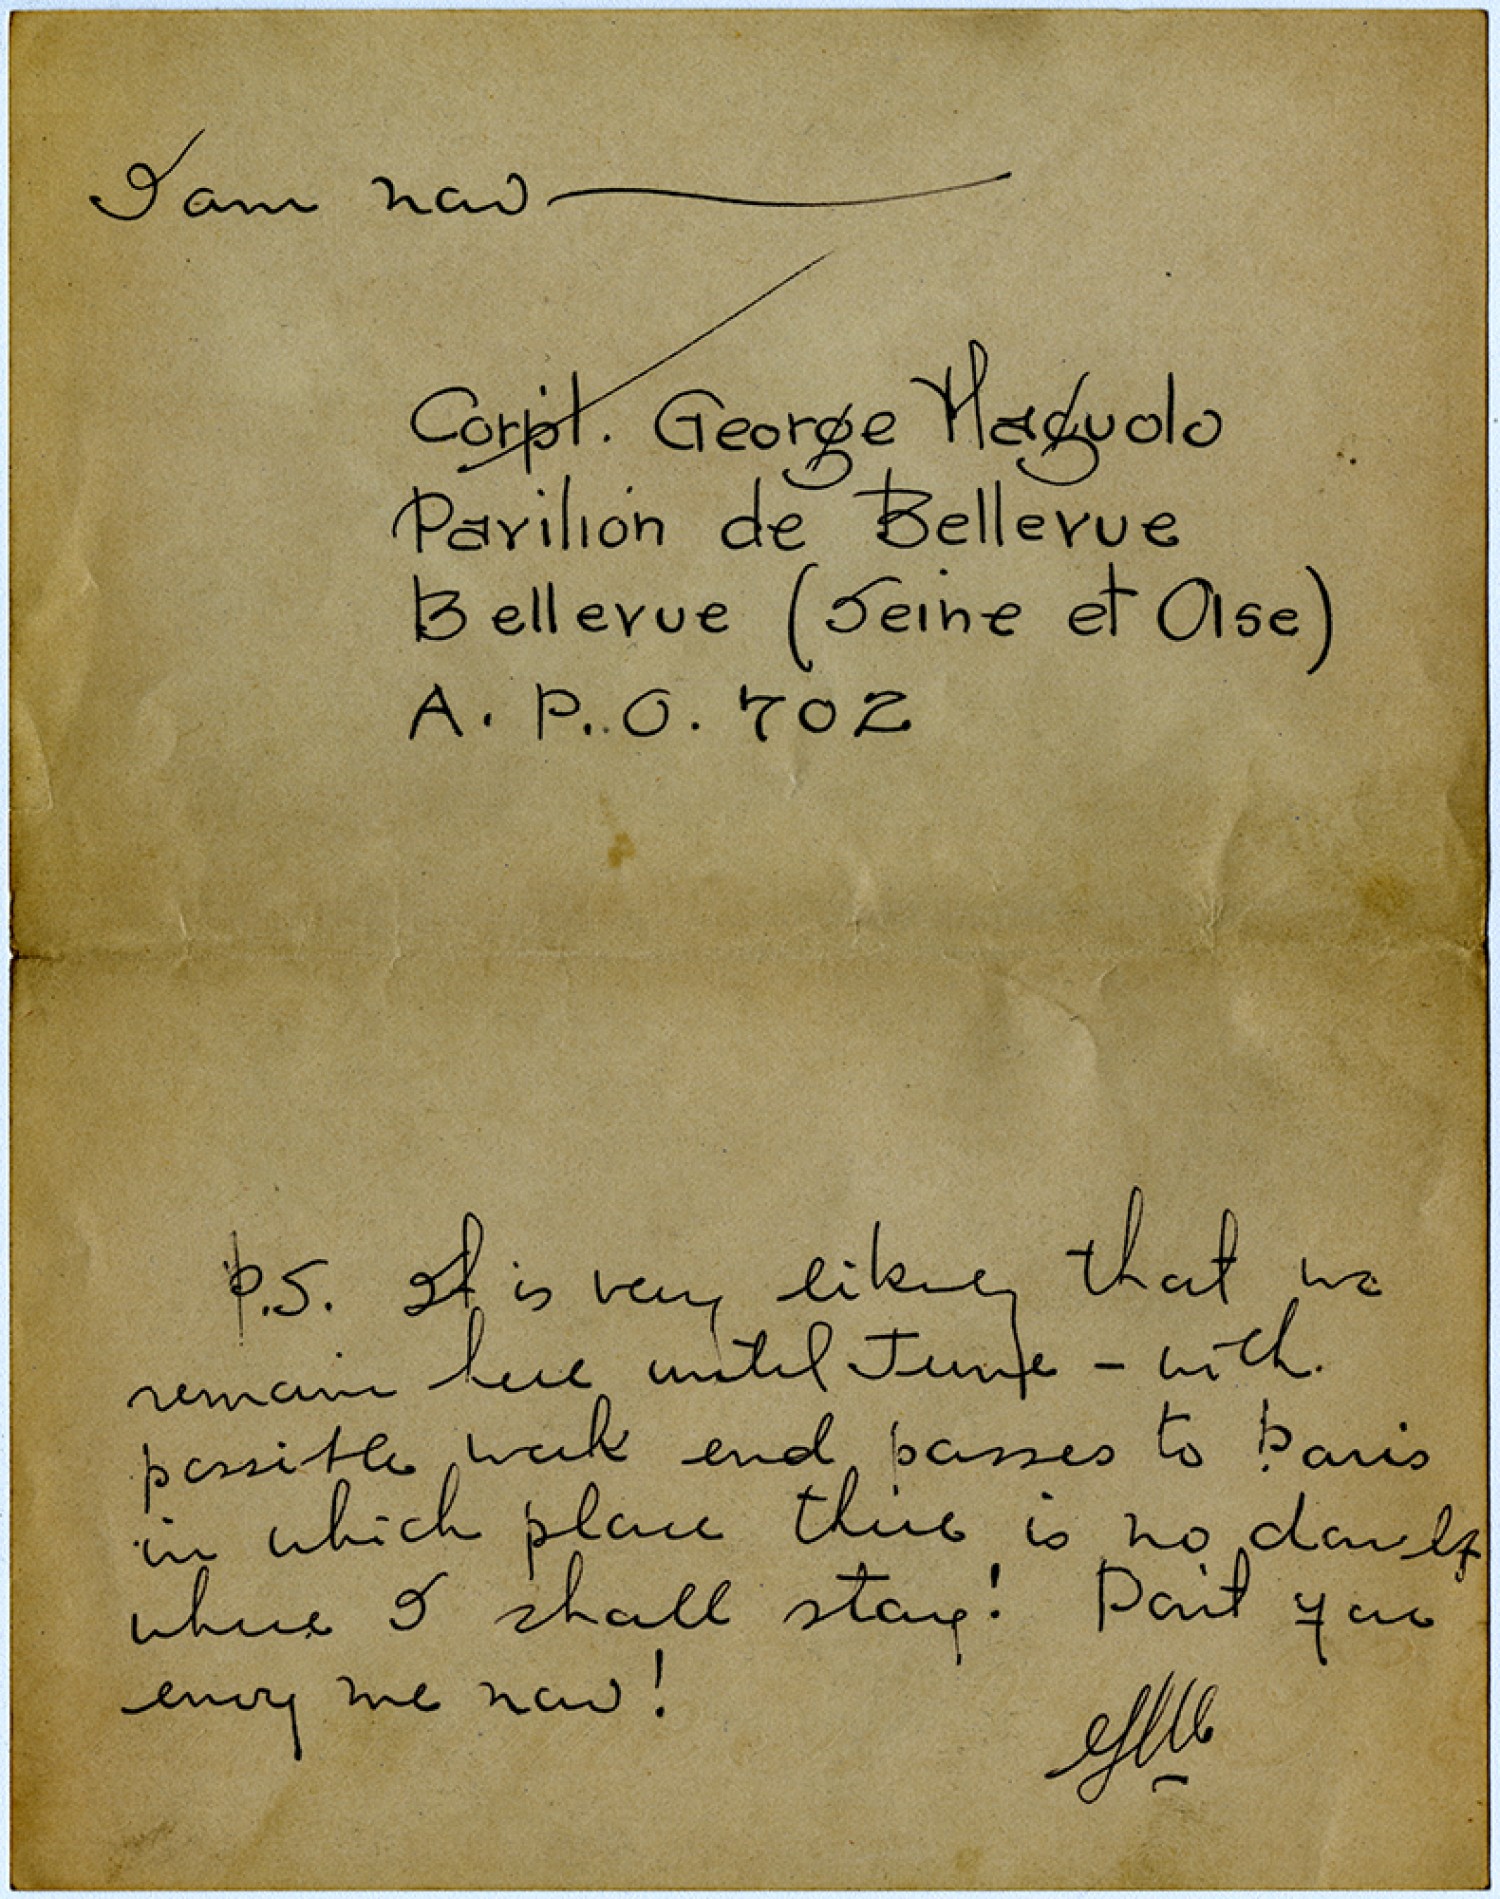 I am now
Corpl. George Maguolo
Pavilion de Bellevue
Bellevue (Seine et Oise)
A. P. O. 702
P.S. It is very likely that we
remain here until June - with
possible week end passes to Paris
in which place there is no doubt
where I shall stay! Don't you
envy me now!